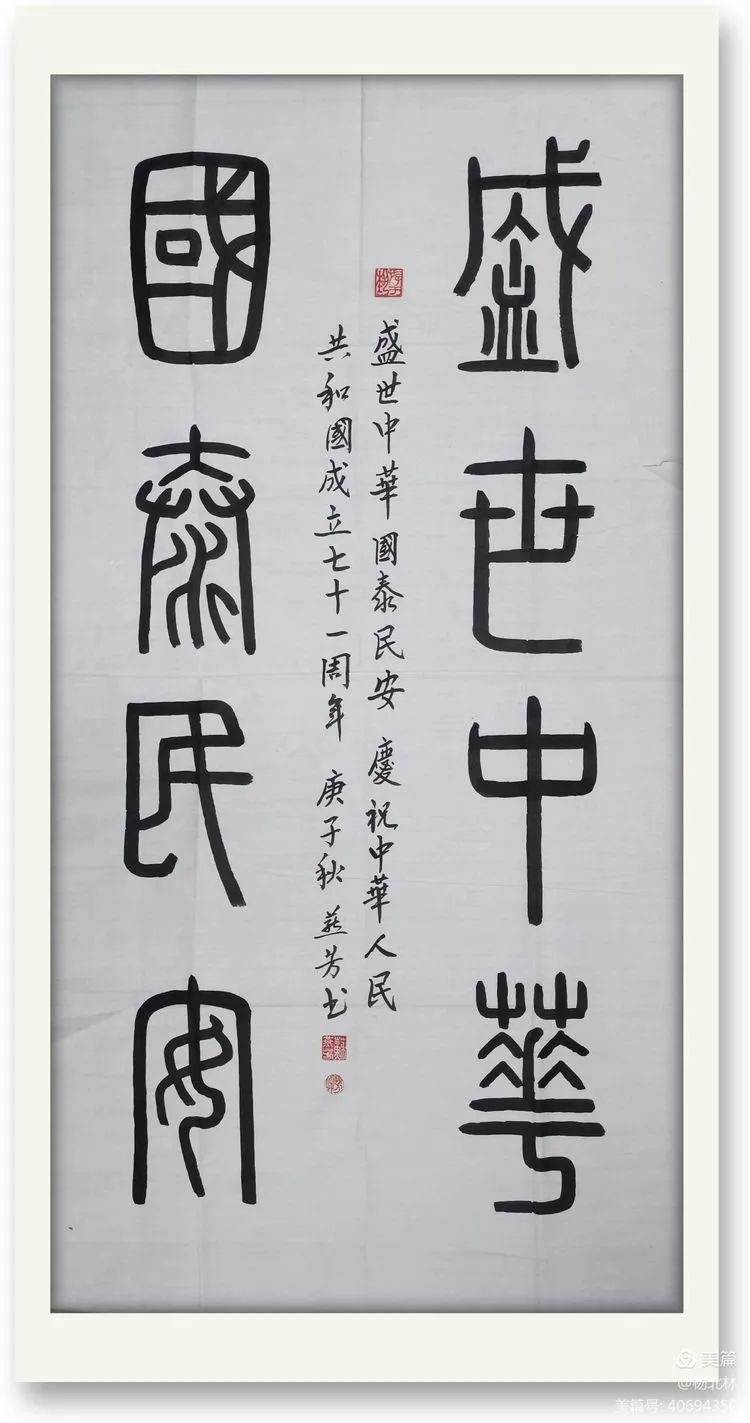 盛世中華
國泰民安
盛世中華國泰民安 慶祝中華人民
共和國成立七十一周年 庚子秋 燕芳书
美篇
@杨北林